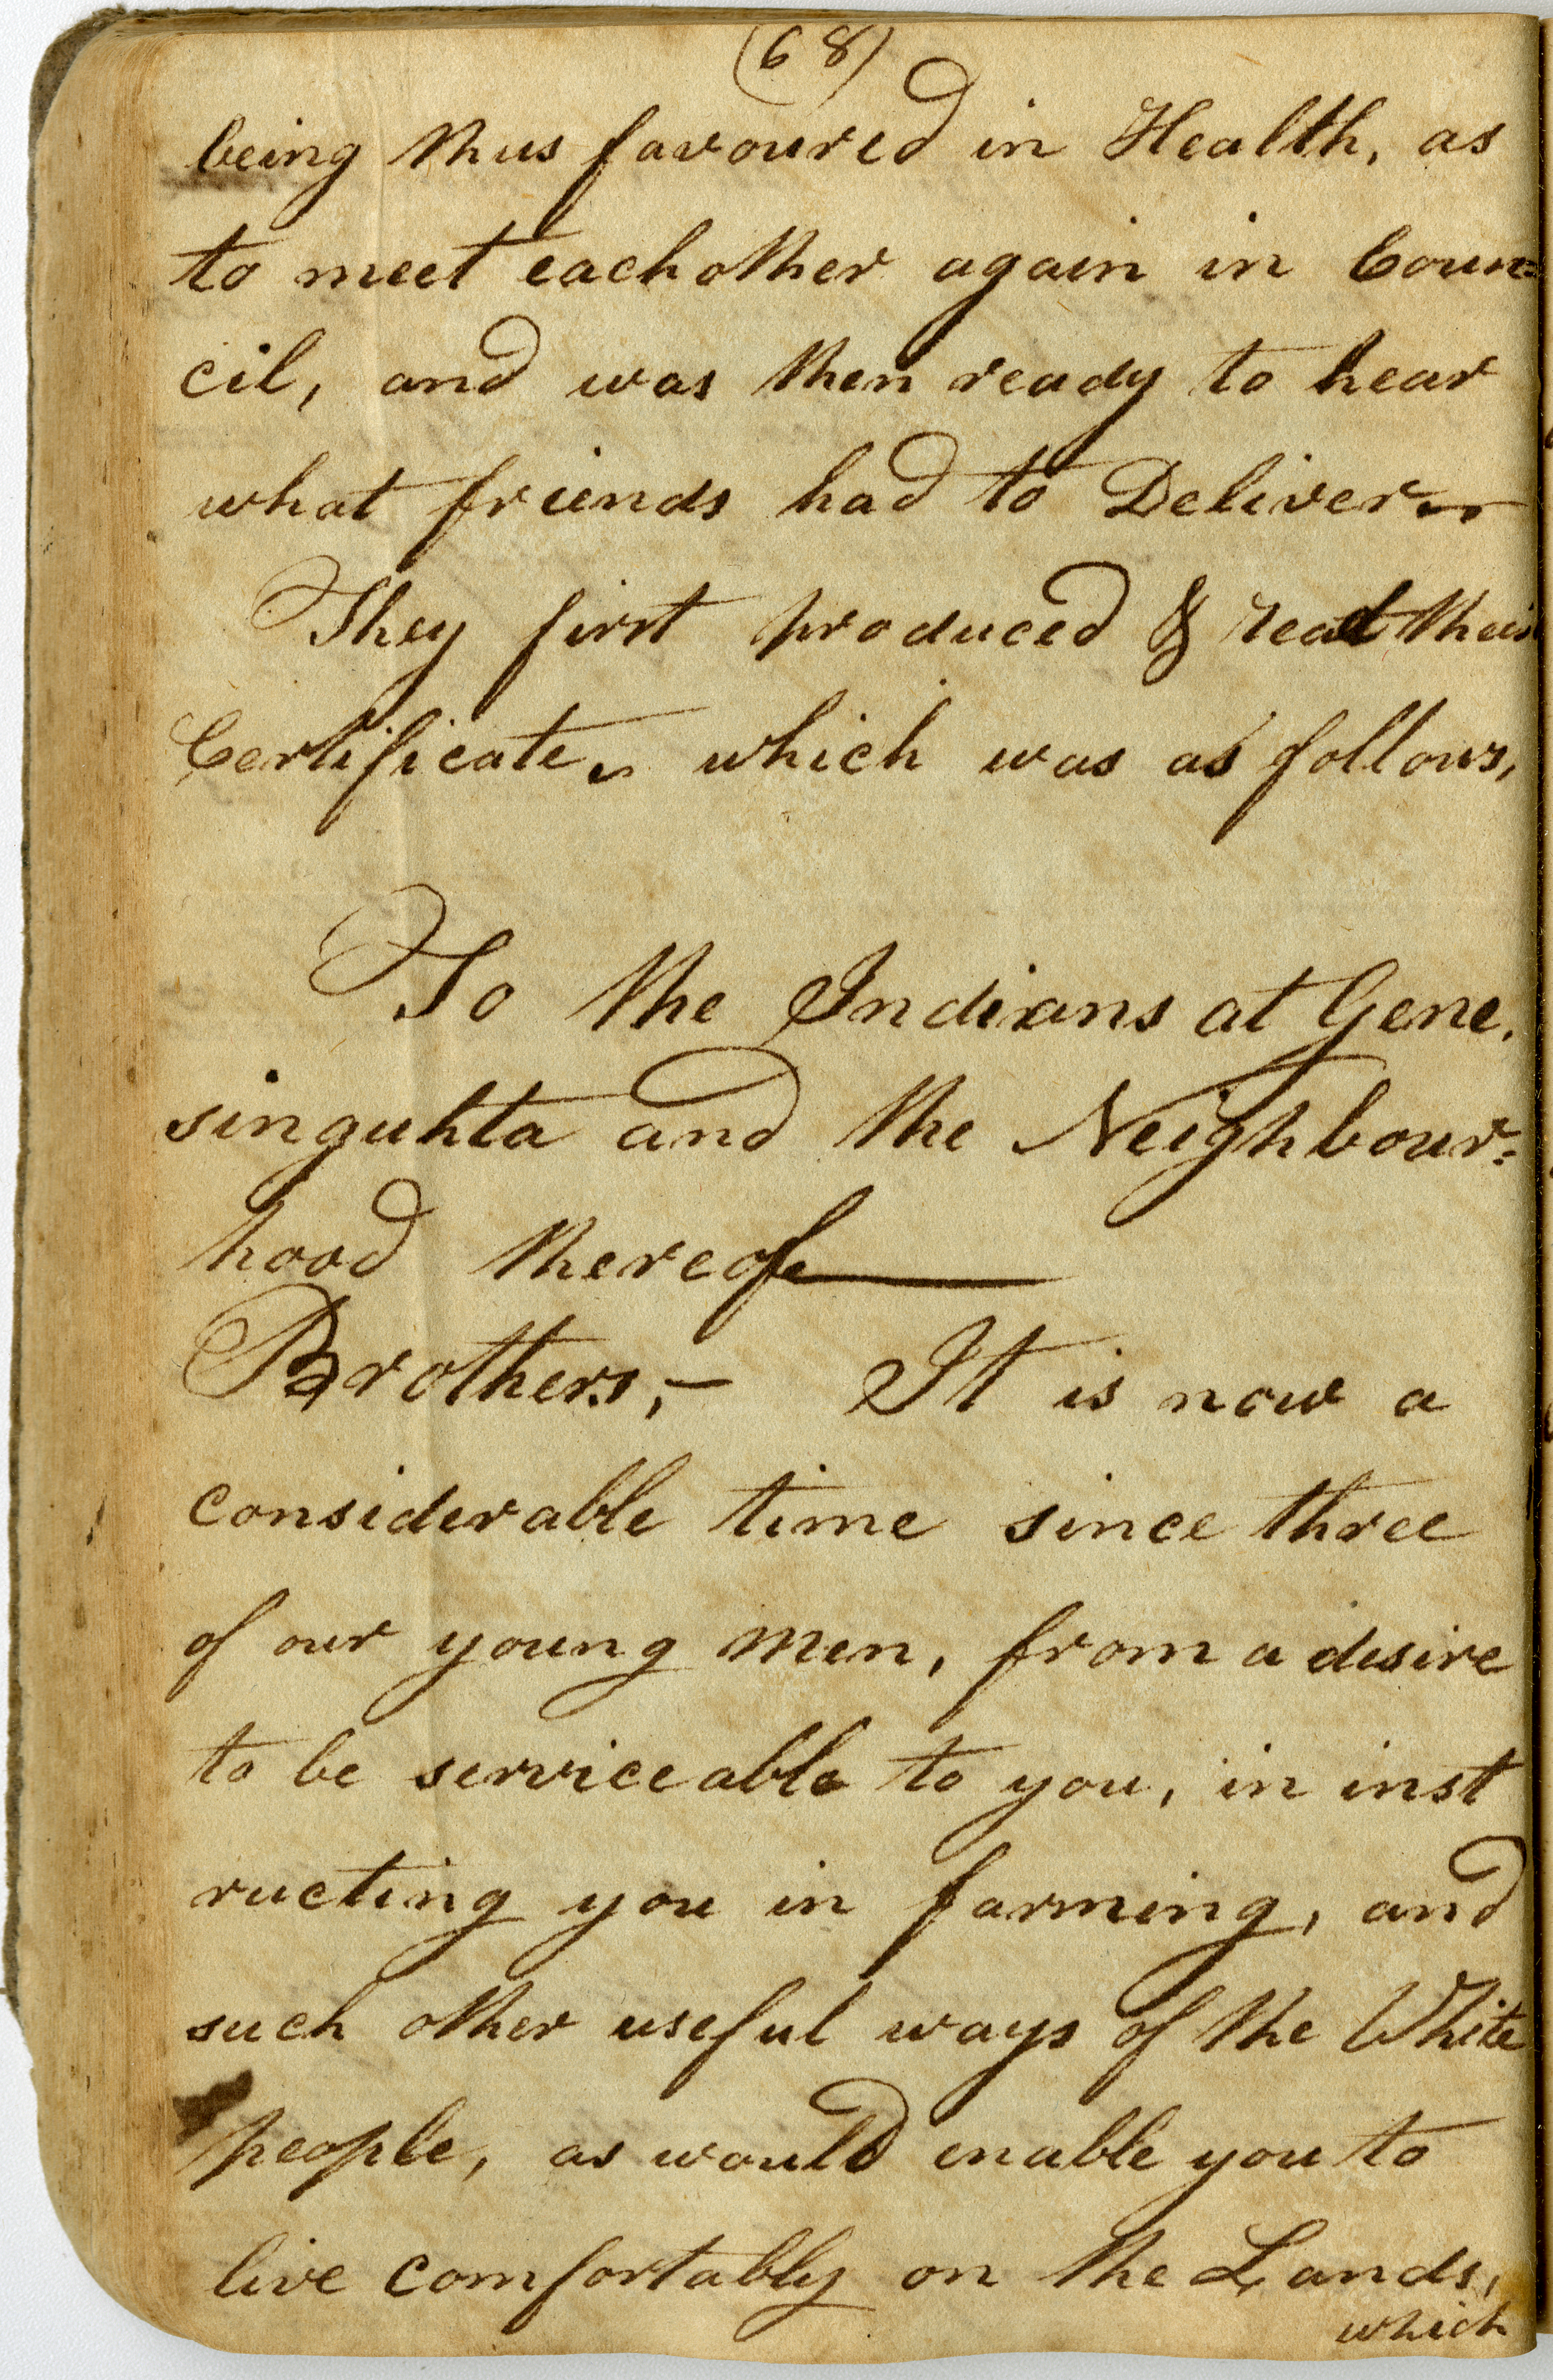 (68)
being thus favoured in Health, as
to meet eachother again in Coun=
cil, and was then ready to hear
what friends had to Deliver
They first produced & read their
Certificate, which was as follows,
To the Indians at Gene.
singuhta and the Neighbour=
hood thereof
Brothers,- It is now a
considerable time since three
of our young men, from a desire
to be serviceable to you, in inst
ructing you in farming, and
such other useful ways of the White
people, as would enable you to
live comfortably on the Lands,
which